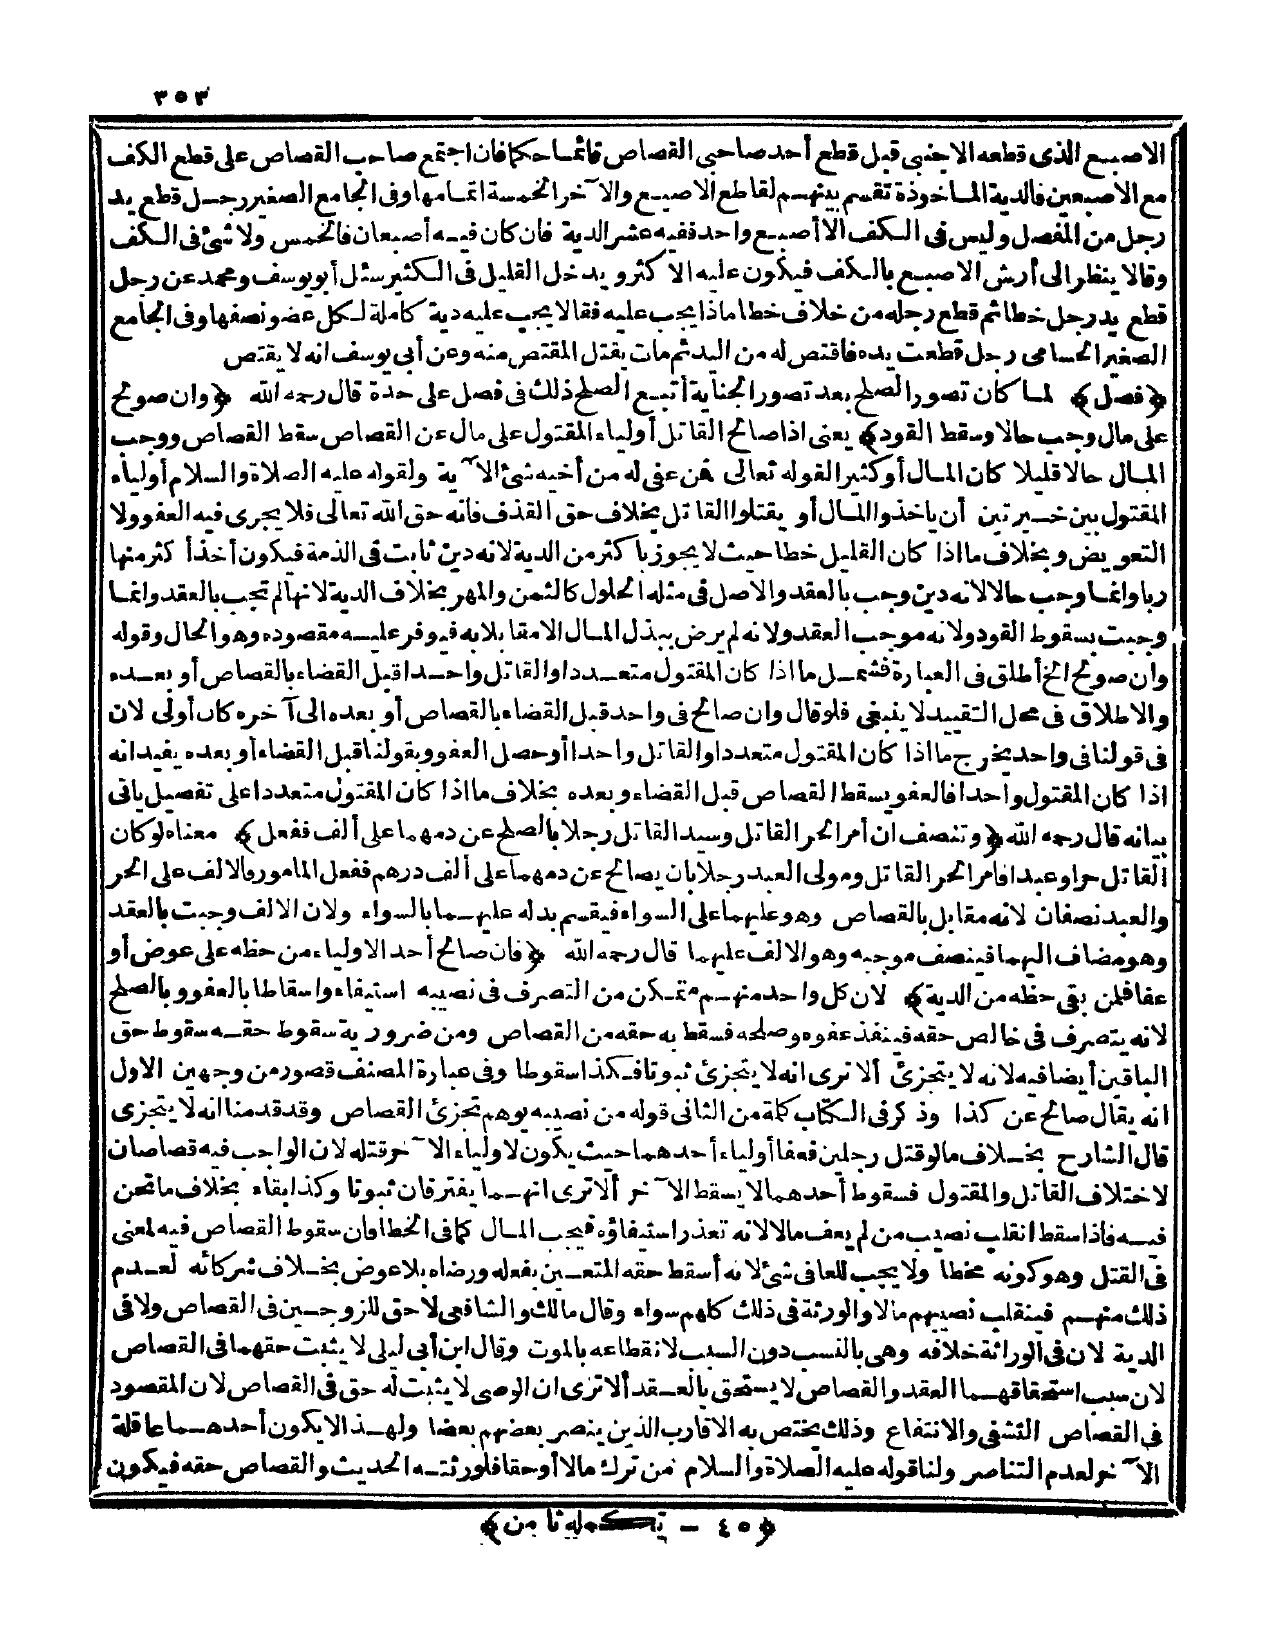 ٣٥٣
الاصبع الذى قطعه الاجنبى قبل قطع أحد صاحبى القصاص قائما حكما فان اجتمع صاحب القصاص على قطع الكف
مع الاصبعين فالدية المأخوذة تقسم بينهم لقاطع الاصبع والآخر الخمسة اتمامها وفى الجامع الصغير رجل قطع يد
رجل من المفصل وليس فى الكف الا أصبع واحد ففيه عشر الدية فان كان فيه أصبعان فالخمس ولا شئ فى الكف
وقالا ينظر الى أرش الاصبع بالكف فيكون عليه الاكثر ويدخل القليل فى الكثير سئل أبو يوسف ومحمد عن رجل
قطع يد رجل خطأ ثم قطع رجله من خلاف خطأ ماذا يجب عليه فقالا يجب عليه دية كاملة لكل عضو نصفها وفى الجامع
الصغير الحسامى رجل قطعت يده فاقتص له من اليد ثم مات يقتل المقتص منه وعن أبى يوسف انه لا يقتص
﴿فصل﴾ لما كان تصور الصلح بعد تصور الجناية أتبع الصلح ذلك فى فصل على حدة قال رحمه الله ﴿وان صولح
على مال وجب حالا وسقط القود﴾ يعنى اذا صالح القاتل أولياء المقتول على مال عن القصاص سقط القصاص ووجب
المال حالا قليلا كان المال أو كثيرا لقوله تعالى فمن عفى له من أخيه شئ الآية ولقوله عليه الصلاة والسلام أولياء
المقتول بين خيرتين أن يأخذوا المال أو يقتلوا القاتل بخلاف حق القذف فانه حق الله تعالى فلا يجرى فيه العفو ولا
التعويض وبخلاف ما اذا كان القليل خطا حيث لا يجوز باكثر من الدية لانه دين ثابت فى الذمة فيكون أخذ أكثر منها
ربا وانما وجب حالا لانه دين وجب بالعقد والاصل فى مثله الحلول كالثمن والمهر بخلاف الدية لانها لم تجب بالعقد وانما
وجبت بسقوط القود ولانه موجب العقد ولانه لم يرض ببذل المال الا مقابلا به فيوفر عليه مقصوده وهو الحال وقوله
وان صولح الخ أطلق فى العبارة فشمل ما اذا كان المقتول متعددا والقاتل واحدا قبل القضاء بالقصاص أو بعده
والاطلاق فى محل التقييد لا ينبغى فلو قال وان صالح فى واحد قبل القضاء بالقصاص أو بعده الى آخره كان أولى لان
فى قولنا فى واحد يخرج ما اذا كان المقتول متعددا والقاتل واحدا أو حصل العفو وبقولنا قبل القضاء أو بعده يفيد انه
اذا كان المقتول واحدا فالعفو يسقط القصاص قبل القضاء وبعده بخلاف ما اذا كان المقتول متعددا على تفصيل يأتى
بيانه قال رحمه الله ﴿وتنصف ان أمر الحر القاتل وسيد القاتل رجلا بالصلح عن دمهما على ألف ففعل﴾ معناه لو كان
القاتل حرا وعبدا فامر الحر القاتل ومولى العبد رجلا بان يصالح عن دمهما على ألف درهم ففعل المامور فالالف على الحر
والعبد نصفان لانه مقابل بالقصاص وهو عليهما على السواء فيقسم بدله عليهما بالسواء ولان الالف وجبت بالعقد
وهو مضاف اليهما فينصف موجبه وهو الالف عليهما قال رحمه الله ﴿فان صالح أحد الاولياء من حظه على عوض أو
عفا فلمن بقى حظه من الدية﴾ لان كل واحد منهم متمكن من التصرف فى نصيبه استيفاء واسقاطا بالعفو وبالصلح
لانه يتصرف فى خالص حقه فينفذ عفوه وصلحه فسقط به حقه من القصاص ومن ضرورية سقوط حقه سقوط حق
الباقين أيضا فيه لانه لا يتجزئ ألا ترى انه لا يتجزئ ثبوتا فكذا سقوطا وفى عبارة المصنف قصور من وجهين الاول
انه يقال صالح عن كذا وذكر فى الكتاب كلمة من الثانى قوله من نصيبه يوهم تجزئ القصاص وقد قدمنا انه لا يتجزى
قال الشارح بخلاف ما لو قتل رجلين فعفا أولياء أحدهما حيث يكون لاولياء الآخر قتله لان الواجب فيه قصاصان
لاختلاف القاتل والمقتول فسقوط أحدهما لا يسقط الآخر ألا ترى انهما يفترقان ثبوتا وكذا بقاء بخلاف ما نحن
فيه فاذا سقط انقلب نصيب من لم يعف مالا لانه تعذر استيفاؤه فيجب المال كما فى الخطا فان سقوط القصاص فيه لمعنى
فى القتل وهو كونه مخطا ولا يجب للعافى شئ لانه أسقط حقه المتعين بفعله ورضاه بلا عوض بخلاف شركائه لعدم
ذلك منهم فينقلب نصيبهم مالا والورثة فى ذلك كلهم سواء وقال مالك والشافعى لا حق للزوجين فى القصاص ولا فى
الدية لان فى الوراثة خلافه وهى بالنسب دون السبب لانقطاعه بالموت وقال ابن أبى ليلى لا يثبت حقهما فى القصاص
لان سبب استحقاقهما العقد والقصاص لا يستحق بالعقد ألا ترى ان الوصى لا يثبت له حق فى القصاص لان المقصود
فى القصاص التشفى والانتفاع وذلك يختص به الاقارب الذين ينصر بعضهم بعضا ولهذا لا يكون أحدهما عاقلة
الآخر لعدم التناصر ولنا قوله عليه الصلاة والسلام من ترك مالا أو حقا فلورثته الحديث والقصاص حقه فيكون
﴿٤٥ - تكمله ثامن﴾